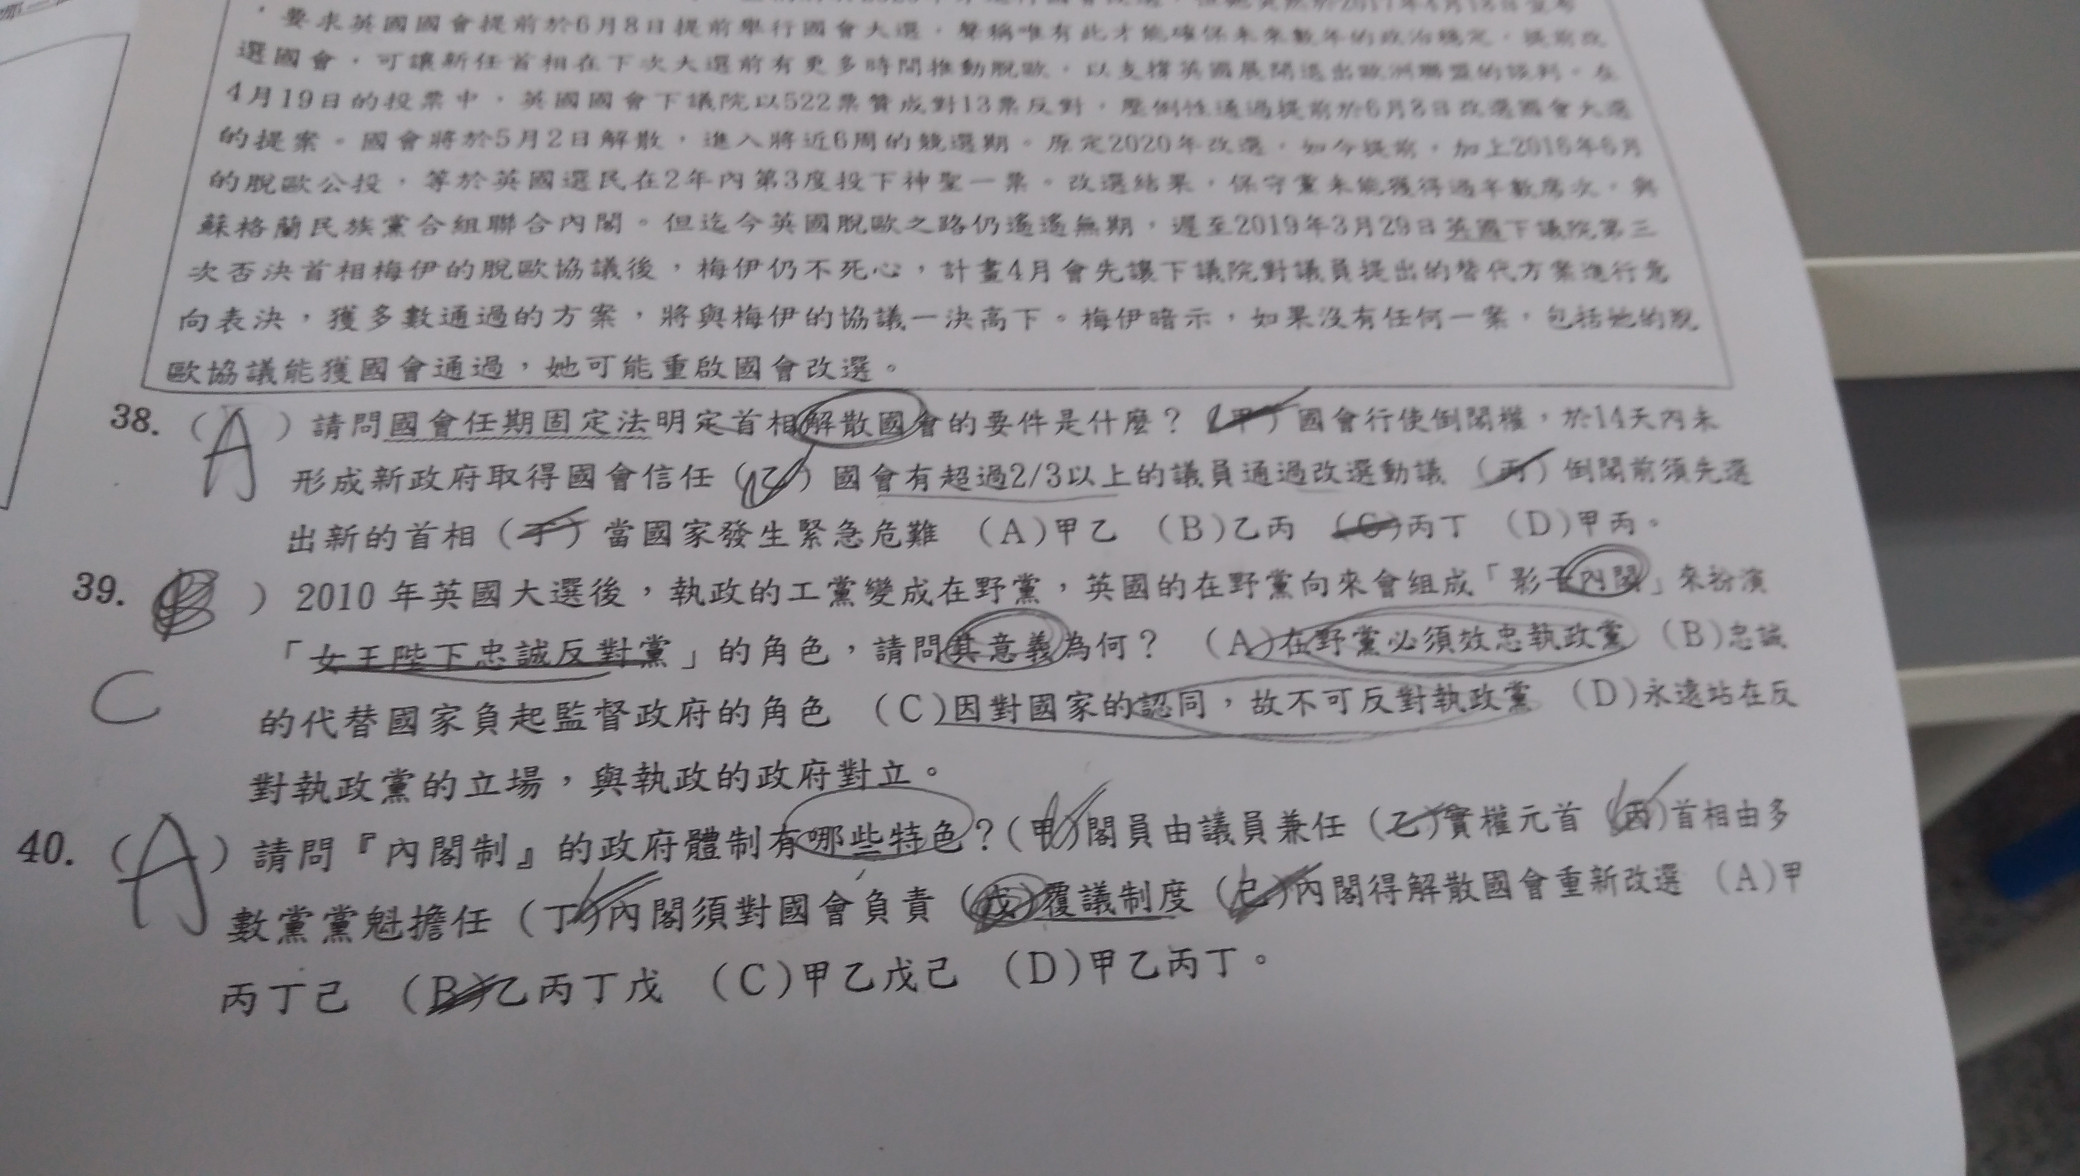 ，要求英國國會提前於6月8日提前舉行國會大選，聲稱唯有此才能確保未來數年的政治穩定，提前改
選國會，可讓新任首相在下次大選前有更多時間推動脫歐，以支撐英國展開退出歐洲聯盟的談判。在
4月19日的投票中，英國國會下議院以522票贊成對13票反對，壓倒性通過提前於6月8日改選國會大選
的提案。國會將於5月2日解散，進入將近6周的競選期。原定2020年改選，如今提前，加上2016年6月
的脫歐公投，等於英國選民在2年內第3度投下神聖一票。改選結果，保守黨未能獲得過半數席次，與
蘇格蘭民族黨合組聯合內閣。但迄今英國脫歐之路仍遙遙無期，遲至2019年3月29日英國下議院第三
次否決首相梅伊的脫歐協議後，梅伊仍不死心，計畫4月會先讓下議院對議員提出的替代方案進行意
向表決，獲多數通過的方案，將與梅伊的協議一決高下。梅伊暗示，如果沒有任何一案，包括她的脫
歐協議能獲國會通過，她可能重啟國會改選。
38.（A）請問國會任期固定法明定首相解散國會的要件是什麼？（甲）國會行使倒閣權，於14天內未
形成新政府取得國會信任（乙）國會有超過2/3以上的議員通過改選動議（丙）倒閣前須先選
出新的首相（丁）當國家發生緊急危難（A)甲乙（B)乙丙（C)丙丁（D)甲丙。
39. ）2010 年英國大選後，執政的工黨變成在野黨，英國的在野黨向來會組成「影子內閣」來扮演
「女王陛下忠誠反對黨」的角色，請問其意義為何？（A)在野黨必須效忠執政黨（B)忠誠
C
的代替國家負起監督政府的角色（C)因對國家的認同，故不可反對執政黨（D)永遠站在反
對執政黨的立場，與執政的政府對立。
40.（A）請問『內閣制』的政府體制有哪些特色？(甲)閣員由議員兼任（乙)實權元首（丙)首相由多
數黨黨魁擔任（丁)內閣須對國會負責（戊)覆議制度（己)內閣得解散國會重新改選（A)甲
丙丁己（B)乙丙丁戊（C)甲乙戊己（D)甲乙丙丁。